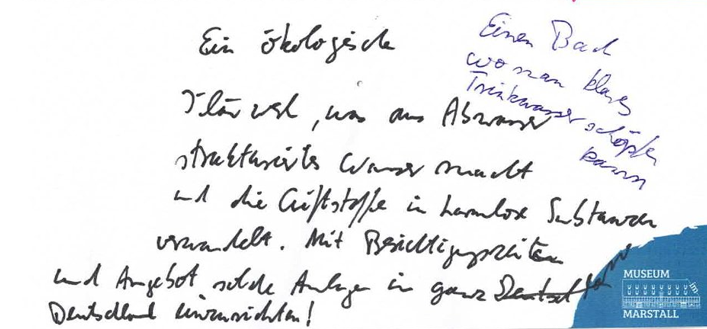 Ein ökologische
Klärwerk, was aus Abwasser
strukturiertes Wasser macht
und die Giftstoffe in harmlose Substanzen
verwandelt. Mit Besichtigungszeiten
und Angebot solche Anlagen in ganz
Deutschland einzurichten!
Einen Bach
wo man klares
Trinkwasser schöpfen
kann
MUSEUM
MARSTALL